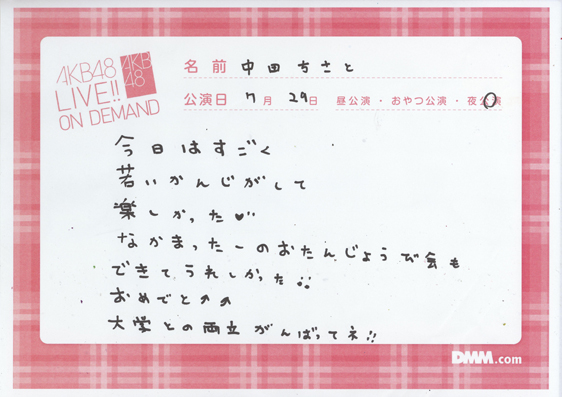 AKB48
LIVE!!
ON DEMAND
AKB
48
名前 中田ちさと
公演日 7月 29日 昼公演・おやつ公演・夜公演
今日はすごく
若いかんじがして
楽しかった♥
なかまったーのおたんじょうび会も
できてうれしかった
おめでと↑↑
大学との両立がんばってネ!!
DMM.com